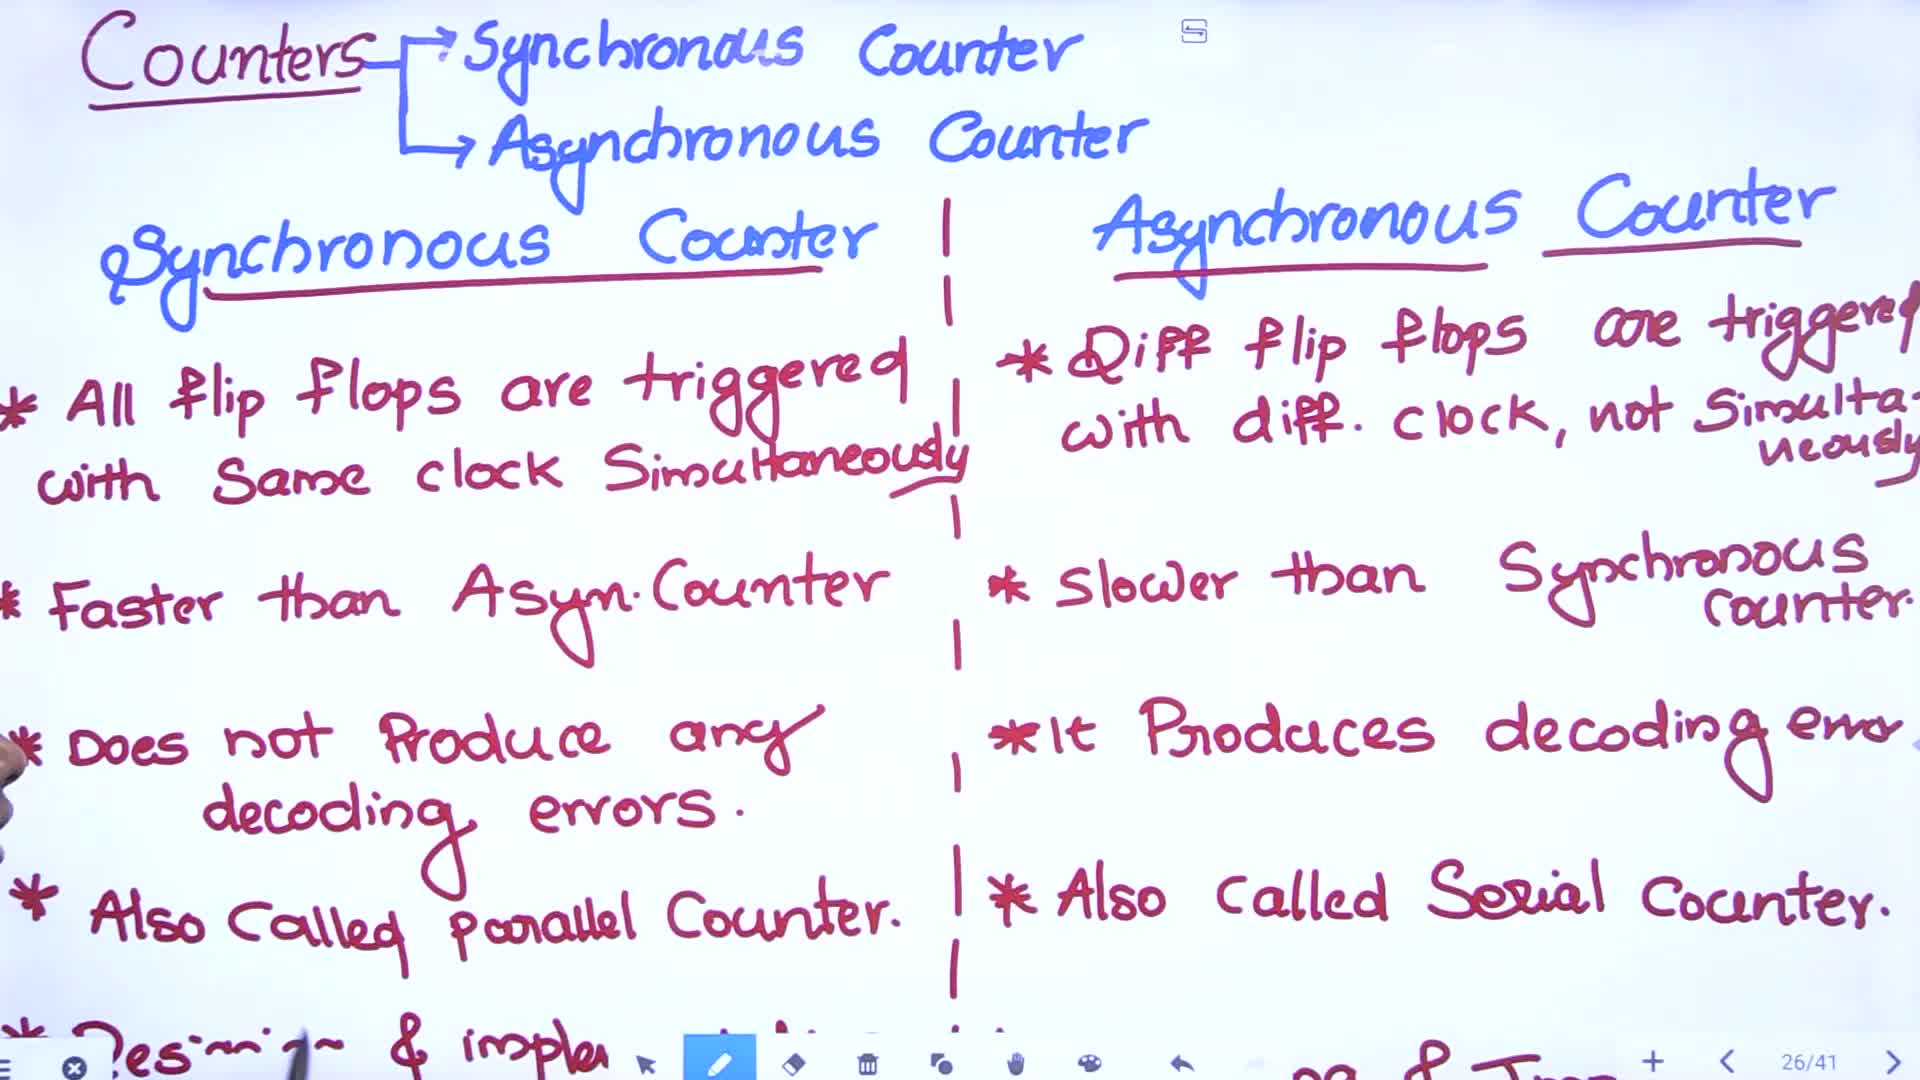 Counters
Synchronous Counter
Asynchronous Counter
Synchronous Counter
* All flip flops are triggered
with Same clock Simultaneously
* Faster than Asyn. Counter
* Does not Produce any
decoding errors.
* Also Called parallel Counter.
* & 
Asynchronous Counter
* Diff flip flops are triggered
with diff. clock, not Simulta-
neously
* Slower than Synchronous
Counter.
* It Produces decoding error
* Also Called Serial Counter.
&
26/41